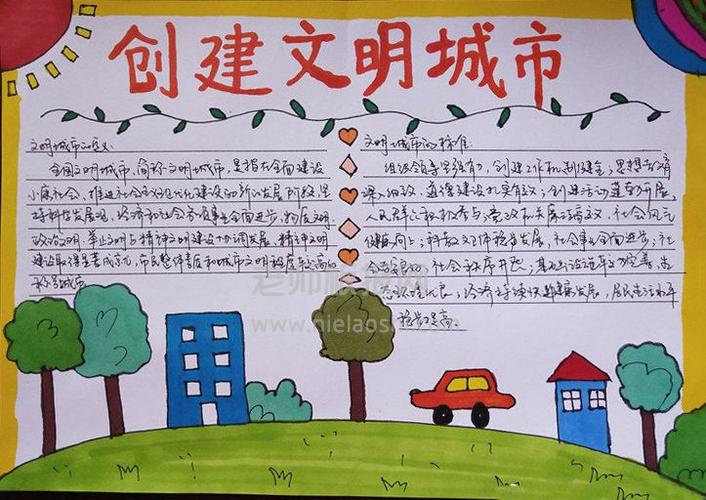 创建文明城市
文明城市
全国文明城市，简称文明城市，是指在全面建设
小康社会，推进社会主义现代化建设的新的发展阶段，坚
持科学发展观，经济和社会各项事业全面进步，物质文明
政治文明、 文明与精神文明建设协调发展，精神文明
建设取得显著成就，市民整体素质和城市文明程度较高的
城市
文明城市的标准：
组织领导坚强有力，创建工作机制健全；思想教育
深入细致，道德建设扎实有效；创建活动蓬勃开展，
人民群众积极参与；党政机关 ，社会风气
健康向上；科教文卫体稳步发展，社会事业全面进步；社
会 ，社会秩序井然；基础设施 完善，生
态环境优良；经济持续快速健康发展，居民生活水平
稳步提高。